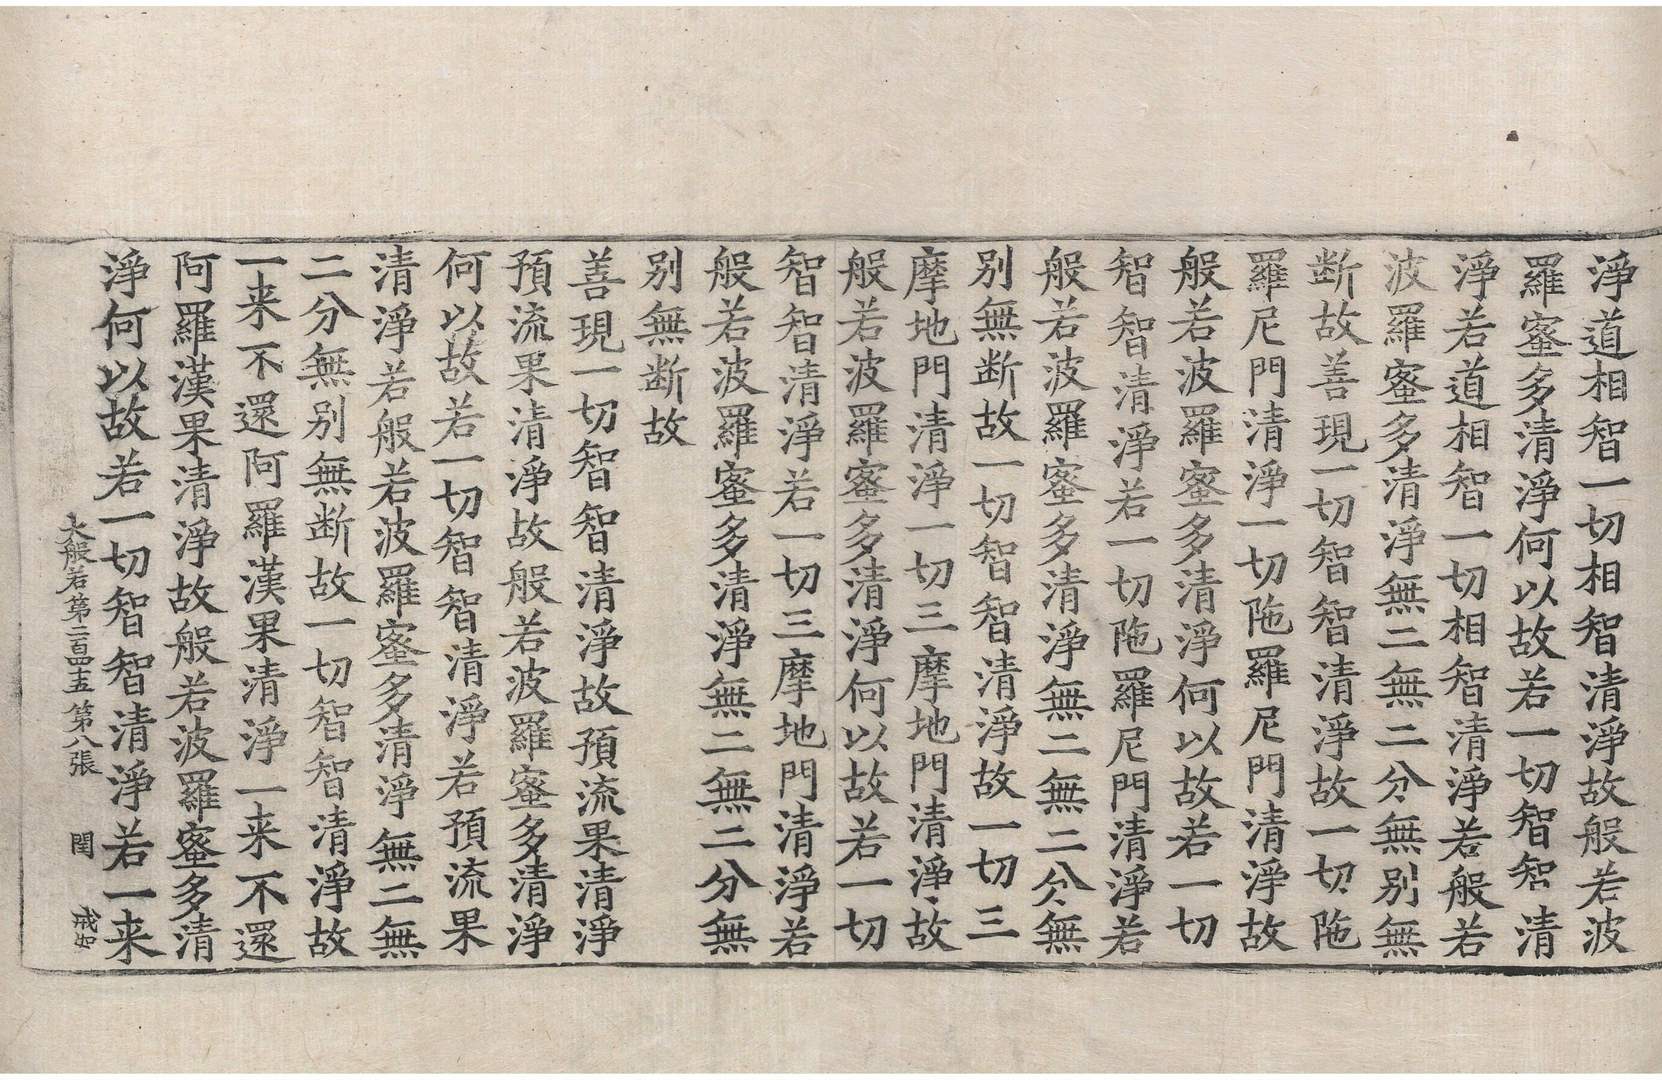 淨道相智一切相智清淨故般若波
羅蜜多清淨何以故若一切智智清
淨若道相智一切相智清淨若般若
波羅蜜多清淨無二無二分無別無
断故善現一切智智清淨故一切陁
羅尼門清淨一切陁羅尼門清淨故
般若波羅蜜多清淨何以故若一切
智智清淨若一切陁羅尼門清淨若
般若波羅蜜多清淨無二無二分無
別無断故一切智智清淨故一切三
摩地門清淨一切三摩地門清淨故
般若波羅蜜多清淨何以故若一切
智智清淨若一切三摩地門清淨若
般若波羅蜜多清淨無二無二分無
別無断故
善現一切智智清淨故預流果清淨
預流果清淨故般若波羅蜜多清淨
何以故若一切智智清淨若預流果
清淨若般若波羅蜜多清淨無二無
二分無別無断故一切智智清淨故
一来不還阿羅漢果清淨一来不還
阿羅漢果清淨故般若波羅蜜多清
淨何以故若一切智智清淨若一来
大般若第二百四十五 第八張 閏 戒如